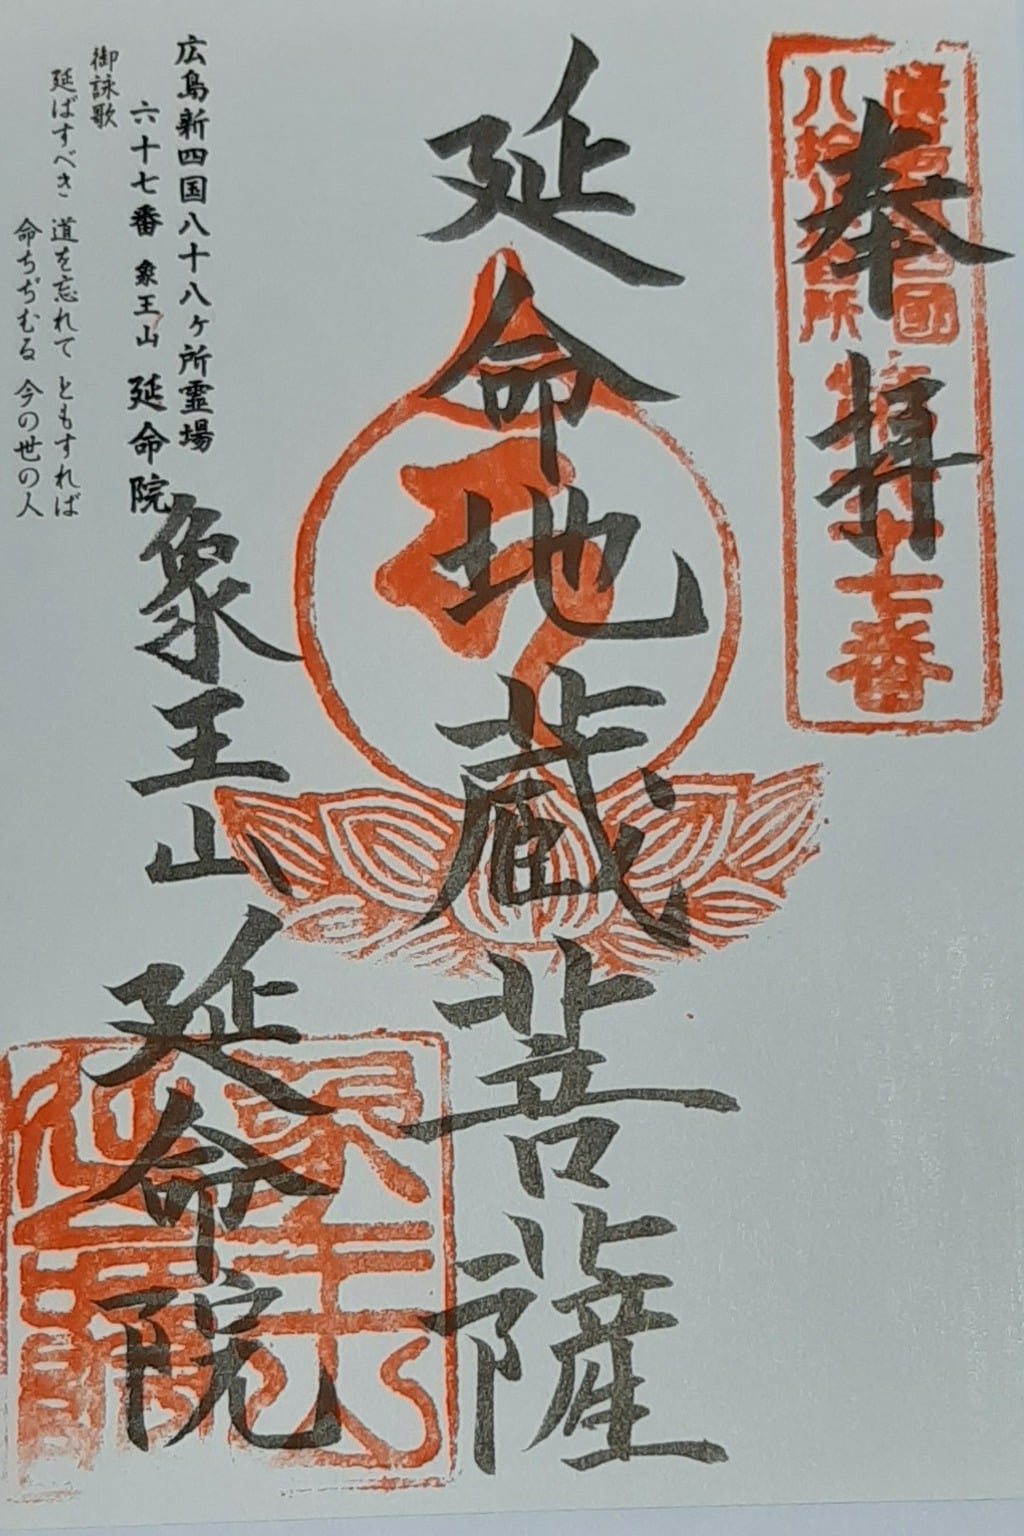 奉拝
延命地蔵菩薩
象王山 延命院
広島新四国八十八ヶ所霊場
六十七番 象王山 延命院
御詠歌
延ばすべき 道を忘れて ともすれば
命ちぢむる 今の世の人